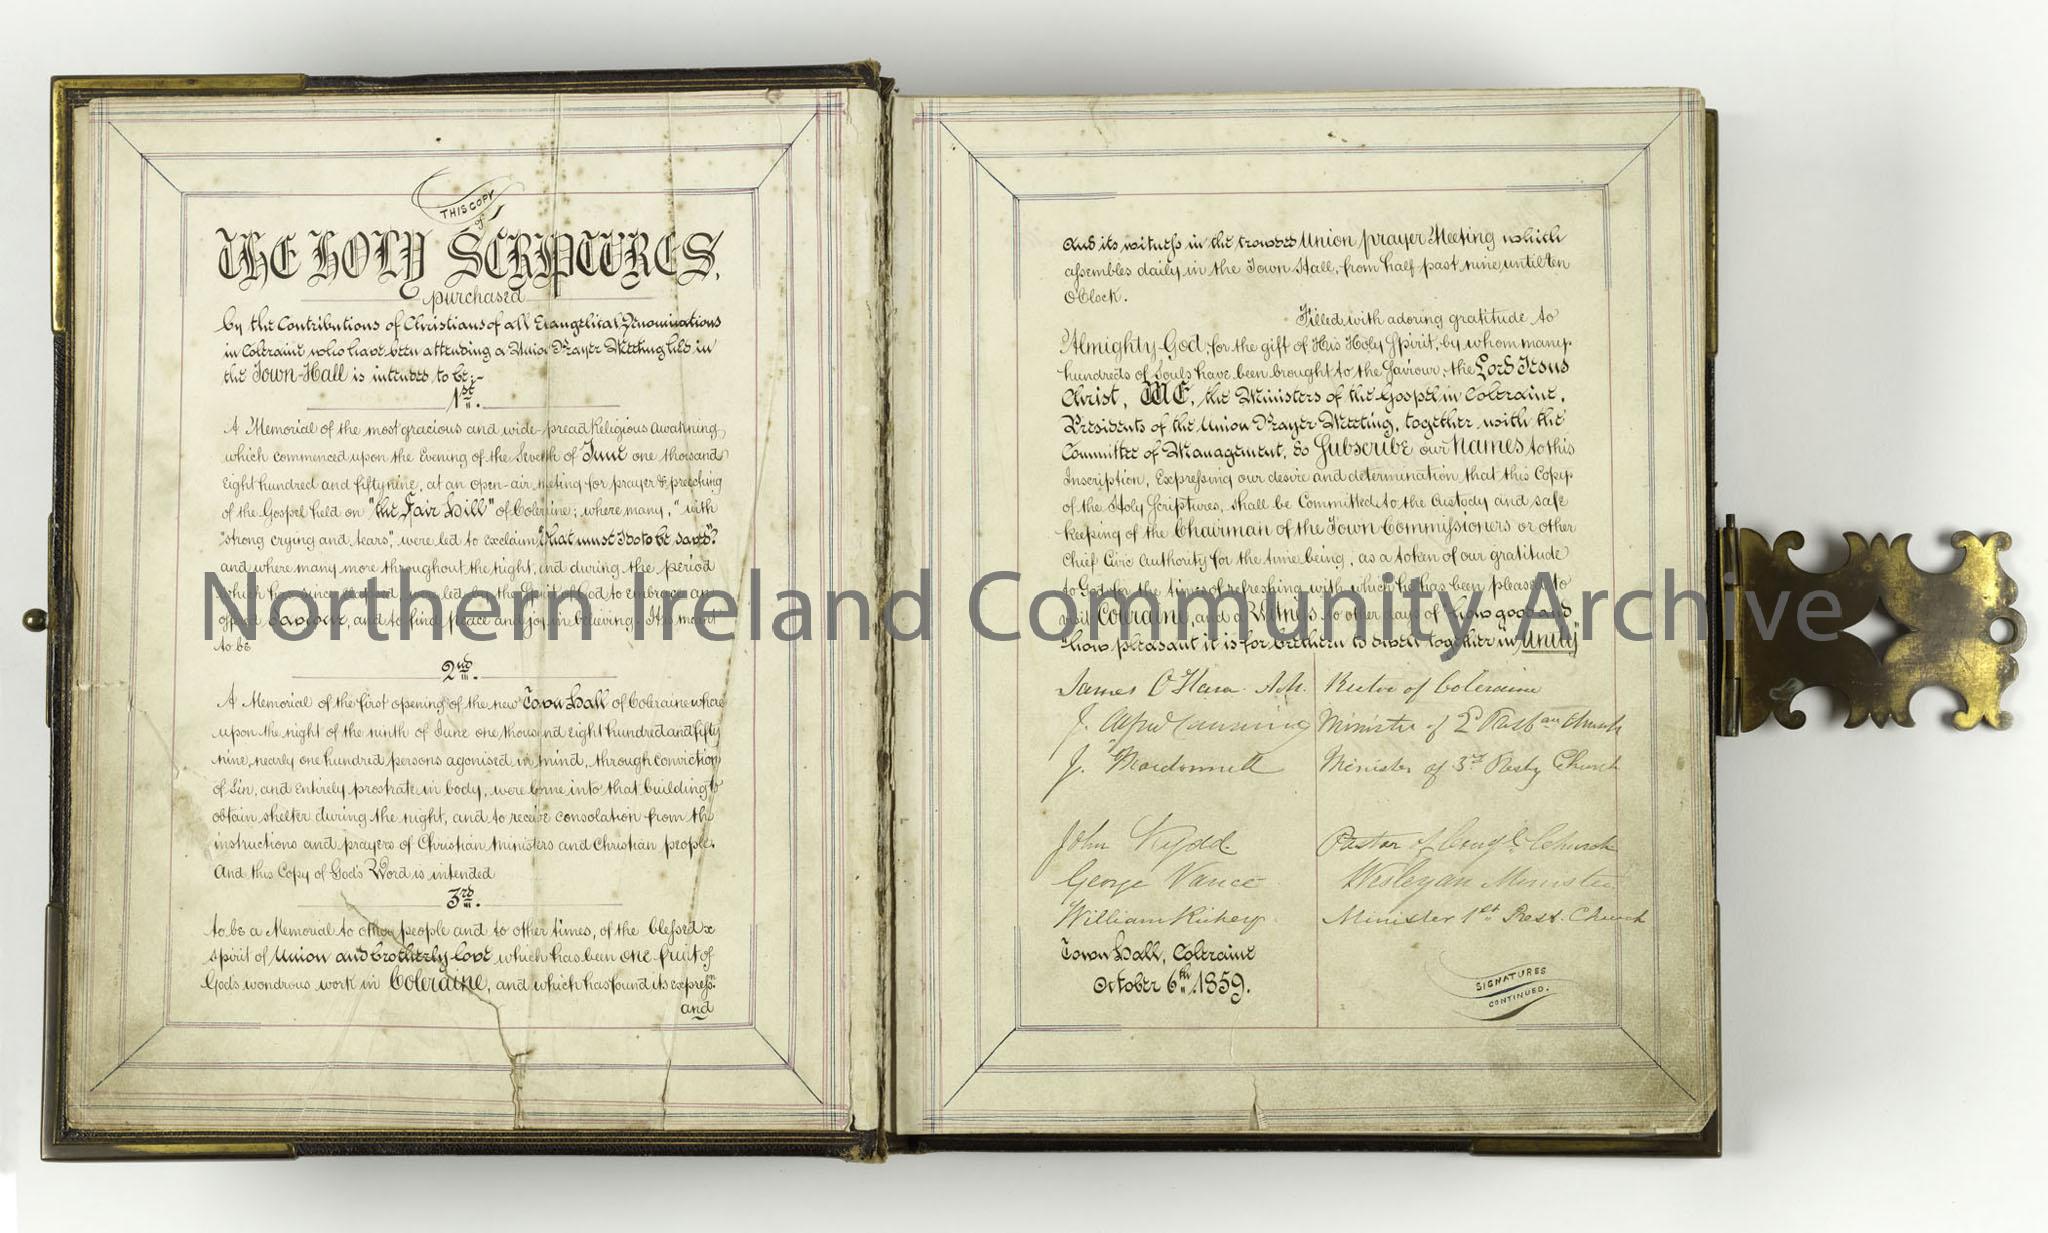 THIS COPY
of
THE HOLY SCRIPTURES,
purchased
by the Contributions of Christians of all Evangelical Denominations
in Coleraine who have been attending a Union Prayer Meeting held in
the Town-Hall is intended to be:-
1st.
A Memorial of the most gracious and wide-spread Religious Awakening
which commenced upon the Evening of the Seventh of June one thousand
Eight hundred and fifty nine, at an open-air meeting for prayer & preaching
of the Gospel held on "the Fair Hill" of Coleraine; where many, "with
"strong crying and tears", were led to exclaim "What must I do to be saved"?
and where many more throughout the night, and during the period
which has since elapsed were led by the Spirit of God to embrace an
offered Saviour, and to find peace and joy in believing. It is meant
to be
2nd.
A Memorial of the first opening of the new Town Hall of Coleraine where
upon the night of the ninth of June one thousand eight hundred and fifty
nine, nearly one hundred persons agonised in mind, through conviction
of Sin, and entirely prostrate in body, were borne into that building to
obtain shelter during the night, and to receive consolation from the
instructions and prayers of Christian ministers and Christian people.
And this Copy of God's Word is intended
3rd.
to be a Memorial to other people and to other times, of the blessed
spirit of Union and brotherly love which has been one fruit of
God's wondrous work in Coleraine, and which has found its expressn
and
And its witness in the crowded Union prayer Meeting which
assembles daily in the Town Hall, from half past nine until ten
O'Clock.
Filled with adoring gratitude to
Almighty God, for the gift of His Holy Spirit, by whom many
hundreds of Souls have been brought to the Saviour, the Lord Jesus
Christ, WE, the Ministers of the Gospel in Coleraine,
Presidents of the Union Prayer Meeting, together with the
Committee of Management, do Subscribe our Names to this
Inscription, Expressing our desire and determination that this Copy
of the Holy Scriptures, shall be Committed to the Custody and safe
keeping of the Chairman of the Town Commissioners or other
Chief Civic Authority for the time being, as a token of our gratitude
to God for the times of refreshing with which he has been pleased to
visit Coleraine, and a Witness to other days of "how good and
"how pleasant it is for brethern to dwell together in Unity"
James O'Hara A.M. Rector of Coleraine
J. Alfred Canning Minister of 2d Presbn Church
J. Macdonnell Minister of 3rd Presby Church
John Kydd Pastor of Congl Church
George Vance Wesleyan Minister
William Richey Minister 1st Presb. Church
Town Hall, Coleraine
October 6th 1859.
SIGNATURES
CONTINUED.
Northern Ireland Community Archive